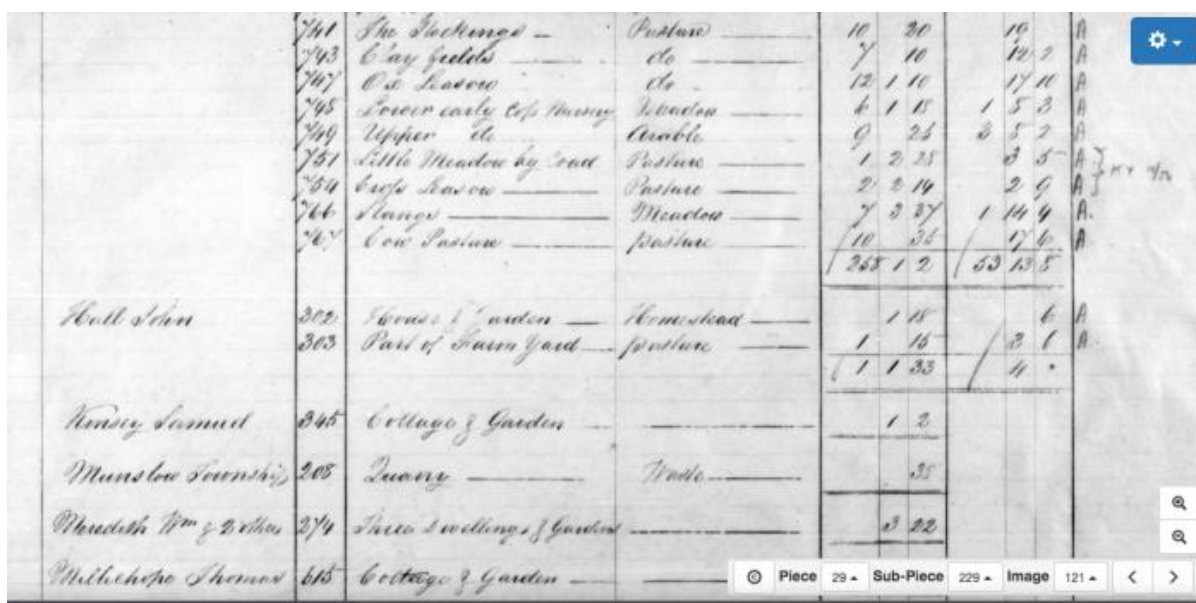 741 The Stockings Pasture 10 20 19 A
743 Clay fields do 7 10 12 2 A
747 Ox Leasow do 12 1 10 17 10 A
748 Lower early Cops Nursery Meadow 6 1 18 1 5 3 A
749 Upper do Arable 9 26 3 5 2 A
751 Little Meadow by Road Pasture 1 2 28 3 5 A
754 Crofs Leasow Pasture 2 2 14 2 9 A
766 Slangs Meadow 7 3 37 1 14 4 A.
767 Cow Pasture pasture 10 35 17 6 A
258 1 2 53 13 8
Hall John 302 House & Garden Homestead 1 18 6 A
303 Part of Farm Yard pasture 1 15 3 6 A.
1 1 33 4 .
Kinsey Samuel 345 Cottage & Garden 1 2
Munslow Township 208 Quarry Waste 35
Meredith Wm & 2 others 274 Three Dwellings & Gardens 3 22
Millichope Thomas 615 Cottage & Garden
Piece 29 Sub-Piece 229 Image 121